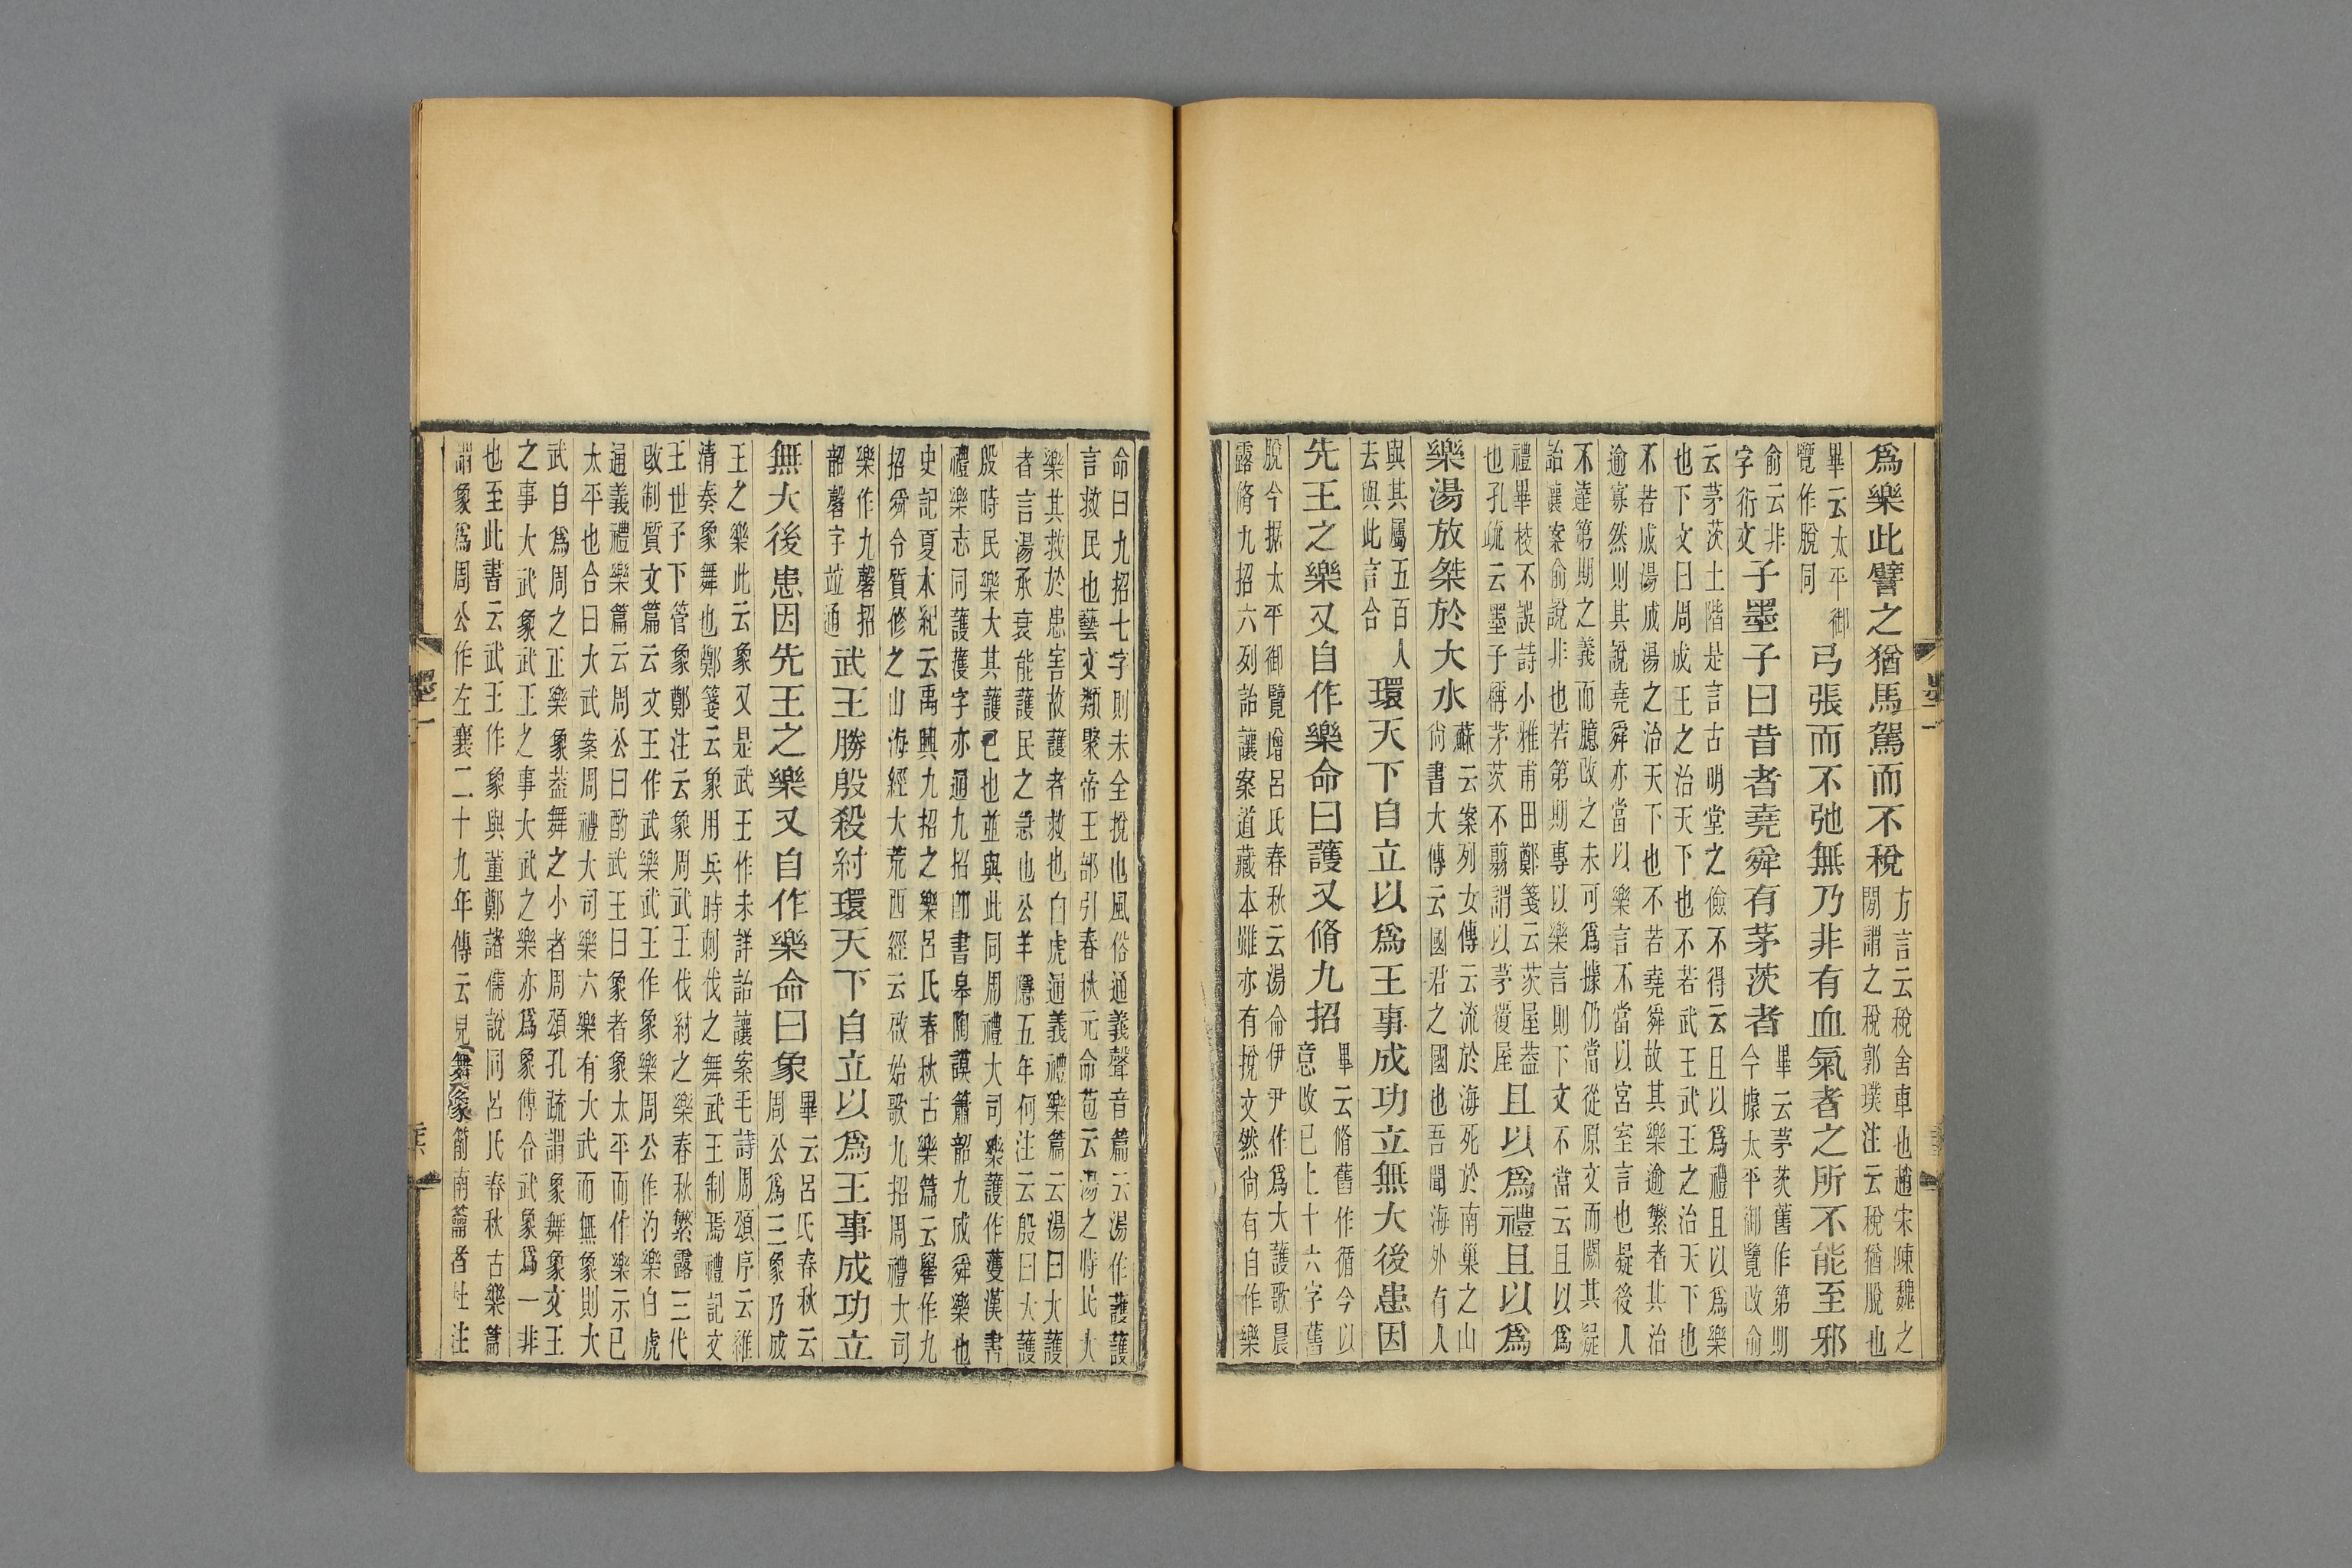 爲樂此譬之猶馬駕而不稅方言云稅舍車也趙宋陳魏之
閒謂之稅郭璞注云稅猶脫也
畢云太平御
覽作脫同弓張而不弛無乃非有血氣者之所不能至邪
俞云非
字衍文子墨子曰昔者堯舜有茅茨者畢云茅茨舊作第期
今據太平御覽改俞
云茅茨土階是言古明堂之儉不得云且以爲禮且以爲樂
也下文曰周成王之治天下也不若武王武王之治天下也
不若成湯成湯之治天下也不若堯舜故其樂逾繁者其治
逾寡然則其說堯舜亦當以樂言不當以宮室言也疑後人
不達第期之義而臆改之未可爲據仍當從原文而闕其疑
詒讓案俞說非也若第期專以樂言則下文不當云且以爲
禮畢校不誤詩小雅甫田鄭箋云茨屋蓋
也孔疏云墨子稱茅茨不翦謂以茅覆屋且以爲禮且以爲
樂湯放桀於大水蘇云案列女傳云流於海死於南巢之山
尚書大傳云國君之國也吾聞海外有人
與其屬五百人
去與此言合環天下自立以爲王事成功立無大後患因
先王之樂又自作樂命曰護又脩九招畢云脩舊作循今以
意改已上十六字舊
脫今據太平御覽增呂氏春秋云湯命伊尹作爲大護歌晨
露脩九招六列詒讓案道藏本雖亦有捝文然尚有自作樂
命曰九招七字則未全捝也風俗通義聲音篇云湯作護護
言救民也藝文類聚帝王部引春秋元命苞云湯之時民大
樂其救於患害故護者救也白虎通義禮樂篇云湯曰大護
者言湯承衰能護民之急也公羊隱五年何注云殷曰大護
殷時民樂大其護已也並與此同周禮大司樂護作濩漢書
禮樂志同護濩字亦通九招卽書皋陶謨簫韶九成舜樂也
史記夏本紀云禹興九招之樂呂氏春秋古樂篇云嚳作九
招舜令質修之山海經大荒西經云啟始歌九招周禮大司
樂作九磬招
韶磬字竝通武王勝殷殺紂環天下自立以爲王事成功立
無大後患因先王之樂又自作樂命曰象畢云呂氏春秋云
周公爲三象乃成
王之樂此云象又是武王作未詳詒讓案毛詩周頌序云維
清奏象舞也鄭箋云象用兵時刺伐之舞武王制焉禮記文
王世子下管象鄭注云象周武王伐紂之樂春秋繁露三代
改制質文篇云文王作武樂武王作象樂周公作汋樂白虎
通義禮樂篇云周公曰酌武王曰象者象太平而作樂示已
太平也合曰大武案周禮大司樂六樂有大武而無象則大
武自爲周之正樂象蓋舞之小者周頌孔疏謂象舞象文王
之事大武象武王之事大武之樂亦爲象傳合武象爲一非
也至此書云武王作象與董鄭諸儒說同呂氏春秋古樂篇
謂象爲周公作左襄二十九年傳云見舞象箾南籥者杜注